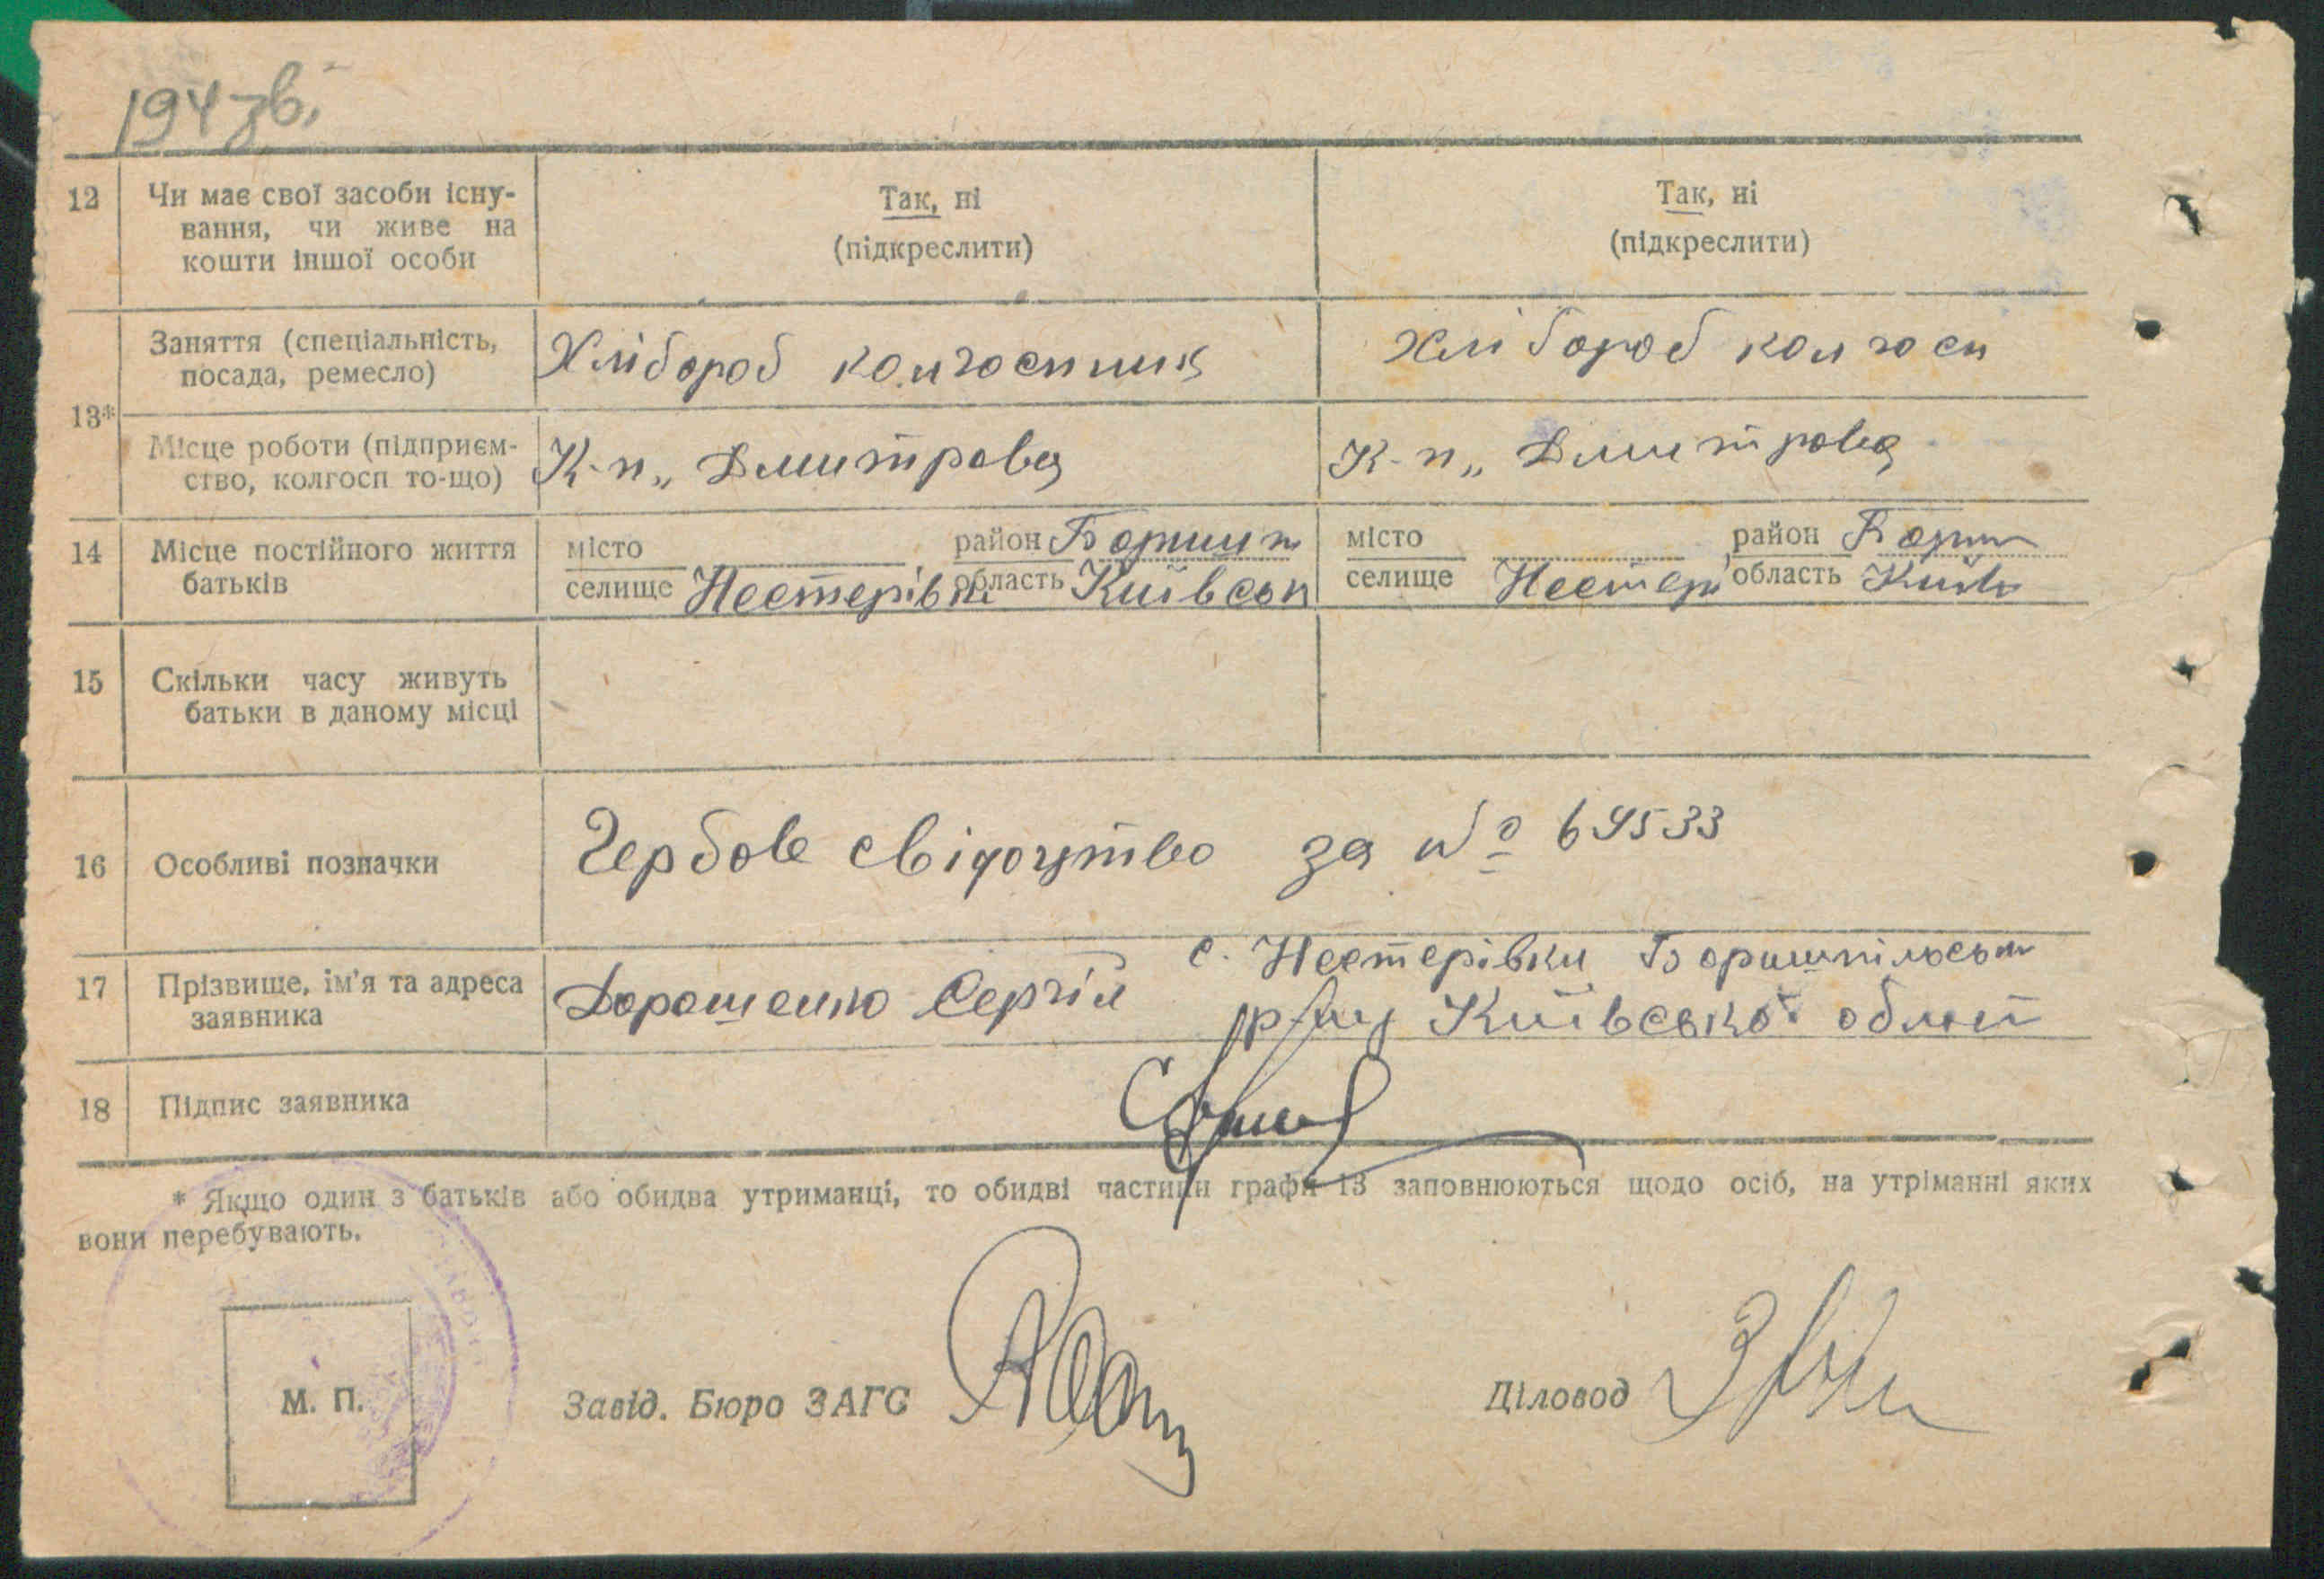 194 зв.
12 Чи має свої засоби існу- Так, ні Так, ні
вання, чи живе на (підкреслити) (підкреслити)
кошти іншої особи
Заняття (спеціальність, Хлібороб колгоспник Хлібороб колгосп
посада, ремесло)
13*
Місце роботи (підприєм- К-п „Дмитрова К-п „Дмитрова
ство, колгосп то-що)
14 Місце постійного життя місто район Боришп місто район Бориш
батьків селище Нестерівк область Київськ селище Нестер область Київ
15 Скільки часу живуть
батьки в даному місці
16 Особливі позначки Гербове свідоцтво за № 69533
с. Нестерівки Боришпільськ
17 Прізвище, ім'я та адреса Дорошенко Сергій
заявника р-ну Київсько област
18 Підпис заявника
* Якщо один з батьків або обидва утриманці, то обидві частини графи 13 заповнюються щодо осіб, на утріманні яких
вони перебувають.
М. П. Завід. Бюро ЗАГС Діловод